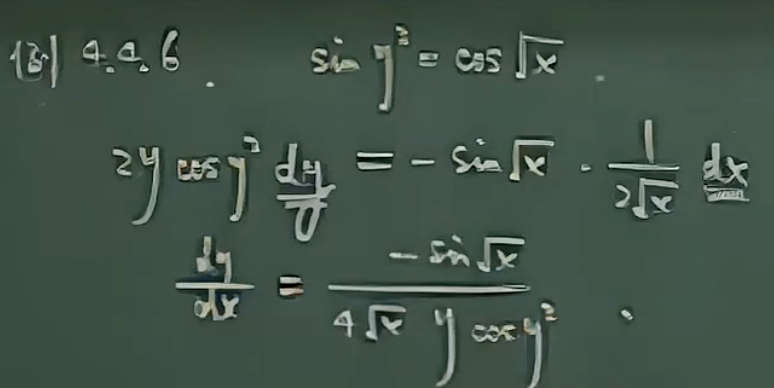 例 4.4.6. sin y² = cos √x.
2y cos y² dy = - sin √x · 1/(2√x) dx
dy/dx = -sin √x / (4√x y cos y²).